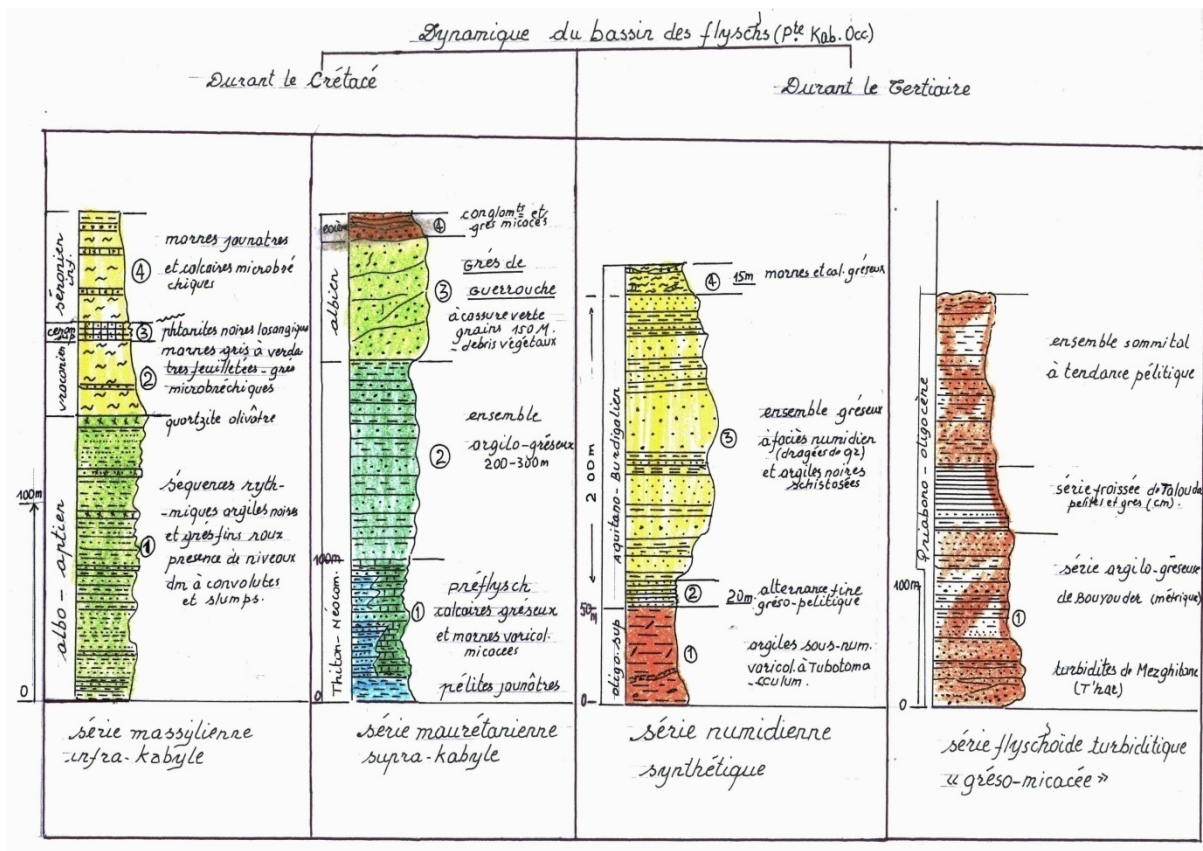 Dynamique du bassin des flyschs (Pte Kab. Occ)
Durant le Crétacé
Durant le Tertiaire
sénonien inf.
vraconien
albo - aptien
100m
0
④
③
②
①
marnes jaunatres
et calcaires microbré
chiques
phtanites noires losangique
marnes gris à verda
tres feuilletées - grés
microbréchiques
quartzite olivâtre
séquences ryth-
-miques argiles noires
et grés fins roux
presence de niveaux
dm à convolutes
et slumps.
série massylienne
infra-kabyle
albien
Thiton-Néocom.
100m
0
④
③
②
①
conglomts et
grés micacés
Grés de
Guerrouche
à cassure verte
grains 150 M.
- debris végetaux
ensemble
argilo-gréseux
200-300m
préflysch
calcaires gréseux
et marnes varicol.
micacées
pélites jaunâtres
série maurétanienne
supra-kabyle
aquitano-Burdigalien
oligo. sup
200m
50m
0
④
③
②
①
15m marnes et cal. gréseux
ensemble gréseux
à faciès numidien
(dragées de qz)
et argiles noires
schistosées
20m alternance fine
gréso-pelitique
argiles sous-num.
varicol. à Tubotoma
-culum.
série numidienne
synthétique
Priabono-oligocène
100m
0
①
ensemble sommital
à tendance pélitique
série froissée de Talouda
pelites et grés (cm).
série argilo-gréseuse
de Bouyouder (métrique)
turbidites de Mezghitane
(T'har)
série flyschoïde turbiditique
« gréso-micacée »